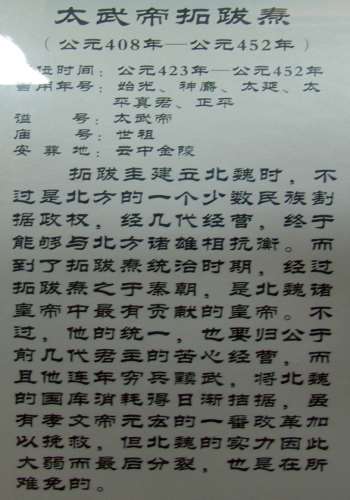 太武帝拓跋焘
（公元408年—公元452年）
在位时间：公元423年—公元452年
曾用年号：始光、神麚、太延、太
平真君、正平
谥号：太武帝
庙号：世祖
安葬地：云中金陵
拓跋圭建立北魏时，不
过是北方的一个少数民族割
据政权，经几代经营，终于
能够与北方诸雄相抗衡。而
到了拓跋焘统治时期，经过
拓跋焘之于秦朝，是北魏诸
皇帝中最有贡献的皇帝。不
过，他的统一，也要归公于
前几代君主的苦心经营，而
且他连年穷兵黩武，将北魏
的国库消耗得日渐拮据，虽
有孝文帝元宏的一番改革加
以挽救，但北魏的实力因此
大弱而最后分裂，也是在所
难免的。